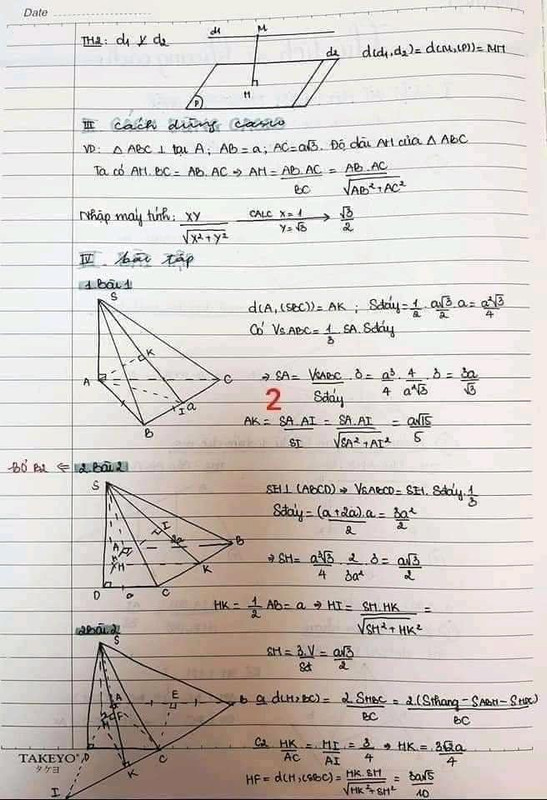 Date
TH2: d1 // d2
d1
M
d2
H
P
d(d1,d2) = d(M,(P)) = MH
III cách dùng casio
VD: △ ABC ⊥ tại A; AB = a; AC = a√3. Độ dài AH của △ ABC
Ta có AH.BC = AB.AC ⇒ AH = AB.AC / BC = AB.AC / √(AB²+AC²)
Nhập máy tính: XY / √(X²+Y²) CALC X=1 Y=√3 → √3/2
IV bài tập
1 Bài 1
S
K
A
C
I
a
B
d(A,(SBC)) = AK ; Sđáy = 1/2 . a√3/2 . a = a²√3/4
Có VSABC = 1/3 SA.Sđáy
⇒ SA = VSABC/Sđáy . 3 = a³/4 . 4/a²√3 . 3 = 3a/√3
2
AK = SA.AI / SI = SA.AI / √(SA²+AI²) = a√15/5
BỎ B2 ⇐ 2 Bài 2
S
I
A
2a
B
H
K
D
a
C
SH⊥(ABCD) ⇒ VSABCD = SH.Sđáy.1/3
Sđáy = (a+2a).a / 2 = 3a²/2
⇒ SH = a³√3/4 . 2/3a² . 3 = a√3/2
HK = 1/2 AB = a ⇒ HI = SH.HK / √(SH²+HK²) =
2 Bài 2
S
A
E
B
F
H
D
C
K
I
SH = 3.V/Sđ = a√3/2
a d(H,BC) = 2 SHBC / BC = 2.(Sthang - SABH - SHDC) / BC
C2 HK/AC = HI/AI = 3/4 ⇒ HK = 3√2a/4
HF = d(H,(SBC)) = HK.SH / √(HK²+SH²) = 3a√5/10
TAKEYO
タケヨ